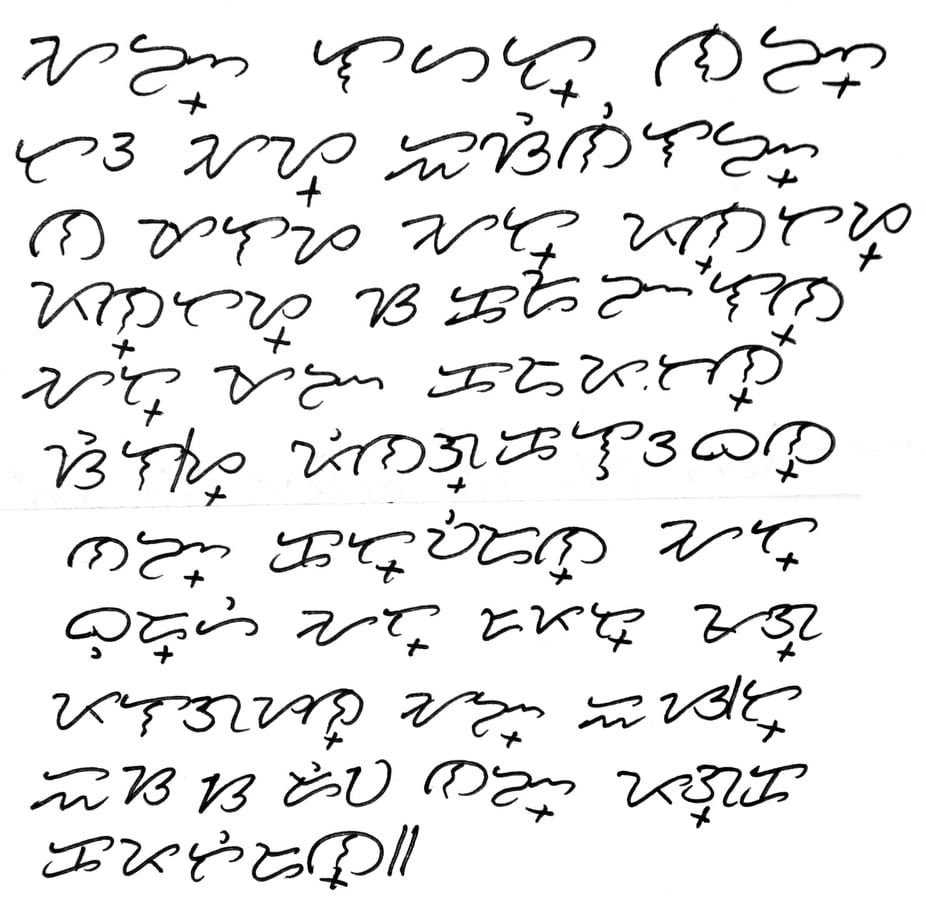 ᜀᜅ᜔ ᜎᜑᜆ᜔ ᜈᜅ᜔
ᜆᜂ ᜀᜌ᜔ ᜁᜐᜒᜈᜒᜎᜅ᜔
ᜈ ᜋᜎᜌ ᜀᜆ᜔ ᜉᜈ᜔ᜆᜌ᜔
ᜉᜈ᜔ᜆᜌ᜔ ᜐ ᜃᜇᜅᜎᜈ᜔
ᜀᜆ᜔ ᜋᜅ ᜃᜇᜉᜆᜈ᜔
ᜐᜒᜎ᜵ᜌ᜔ ᜉᜒᜈᜄ᜔ᜃᜎᜂᜊᜈ᜔
ᜈᜅ᜔ ᜃᜆ᜔ᜏᜒᜇᜈ᜔ ᜀᜆ᜔
ᜊᜓᜇ᜔ᜑᜒ ᜀᜆ᜔ ᜇᜉᜆ᜔ ᜋᜄ᜔
ᜉᜎᜄᜌᜈ᜔ ᜀᜅ᜔ ᜁᜐ᜵ᜆ᜔
ᜁᜐ ᜐ ᜇᜒᜏ ᜈᜅ᜔ ᜉᜄ᜔ᜃ
ᜃᜉᜆᜒᜇᜈ᜔᜶